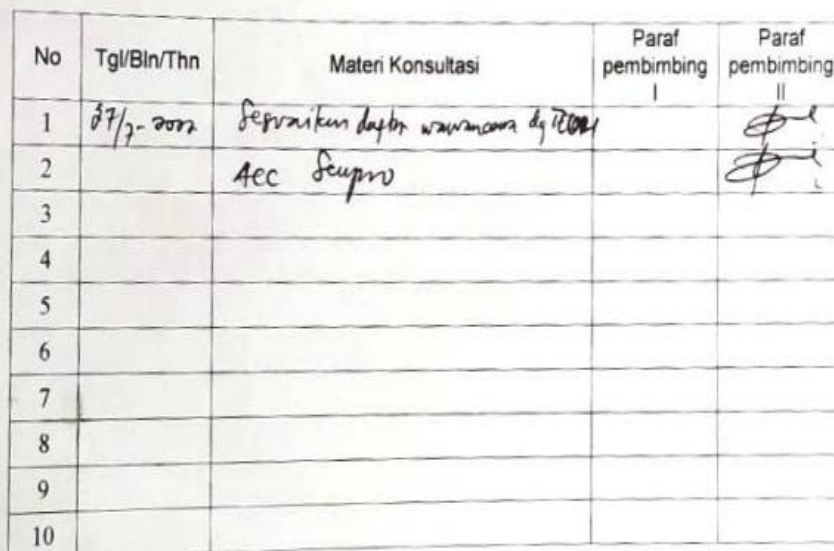 No Tgl/Bln/Thn Materi Konsultasi Paraf pembimbing I Paraf pembimbing II
1 Sesuaikan daftar wawancara dg
2 Acc Sempro
3
4
5
6
7
8
9
10